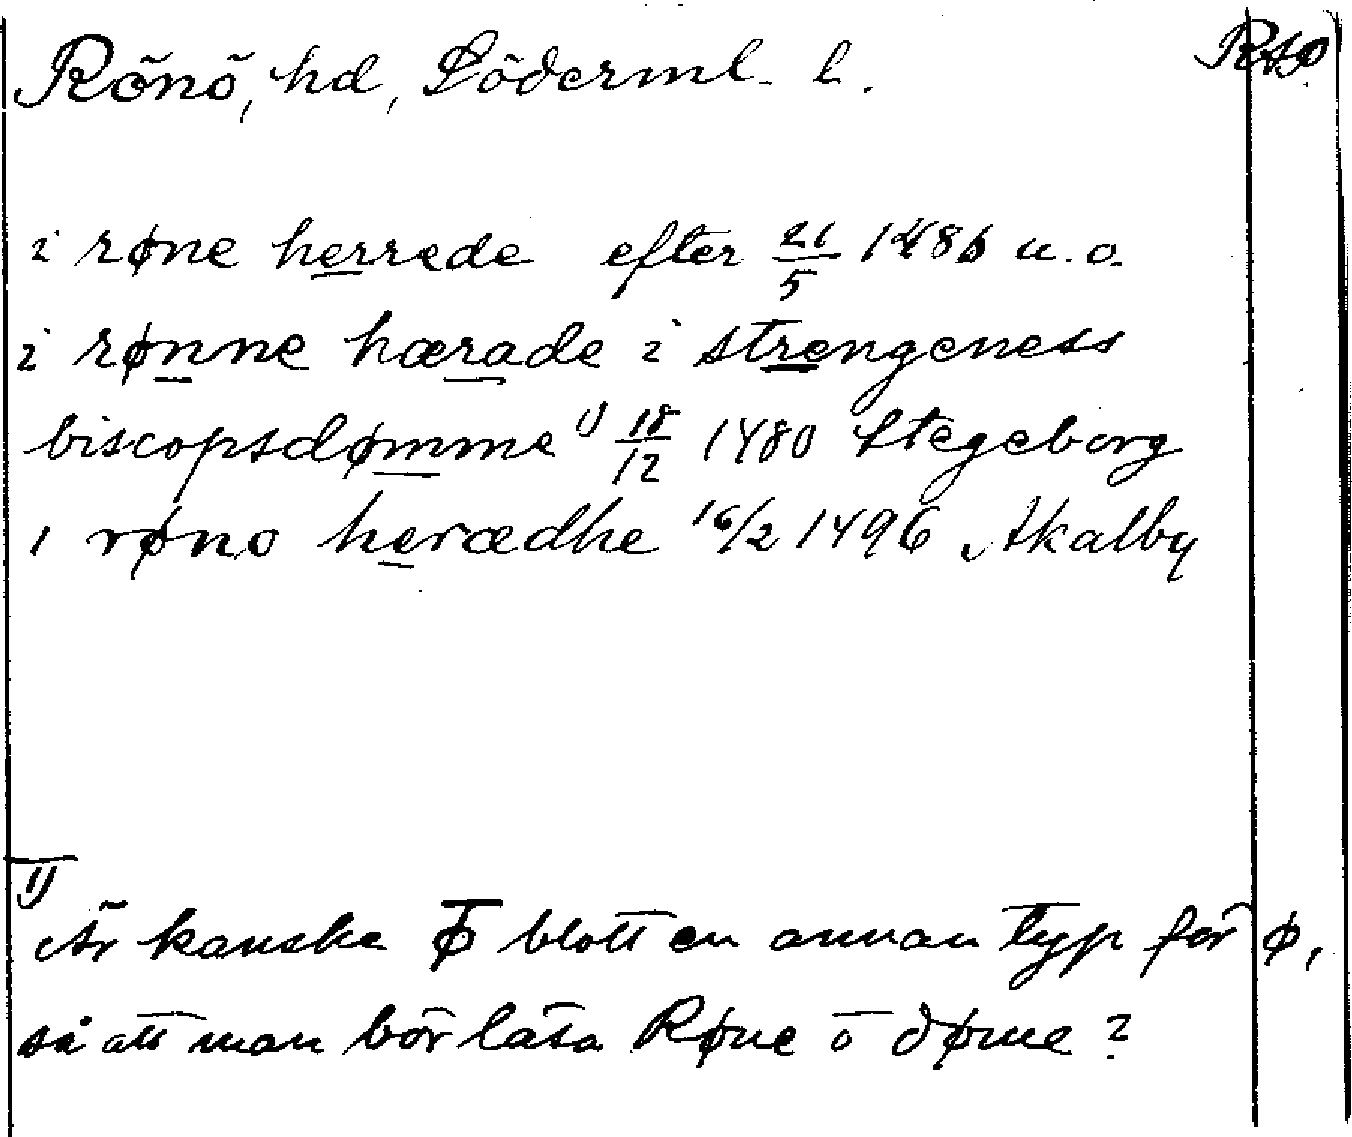 Rönö, hd, Söderml. l. RAp
i røne herrede efter 21/5 1486 u. o.
i rønne hærade i strengeness
biscopsdømme 1) 18/12 1480 Stegeborg
i røno herædhe 16/2 1496 Akalby
1)
Är kanske ø̄ blott en annan typ för ø,
så att man bör läsa Røne o døme?